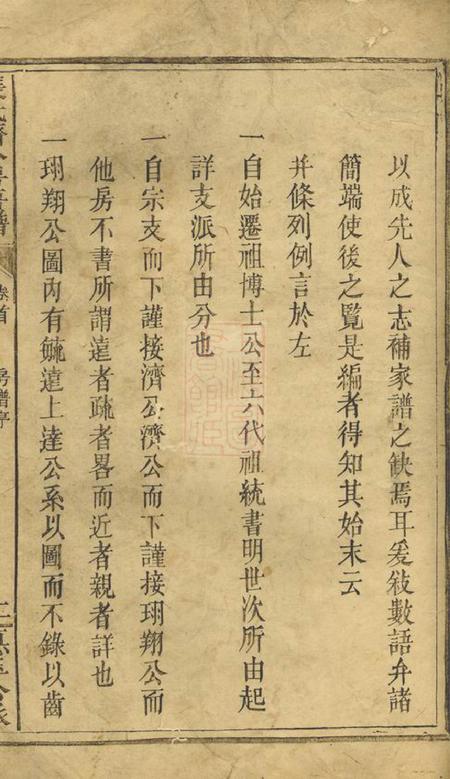 以成先人之志補家譜之缺焉耳爰敍數語弁諸
簡端使後之覽是編者得知其始末云
并條列例言於左
一自始遷祖博士公至六代祖統書明世次所由起
詳支派所由分也
一自宗支而下謹接濟公濟公而下謹接珝翔公而
他房不書所謂遠者疏者畧而近者親者詳也
一珝翔公圖內有毓達上達公系以圖而不錄以齒
卷首
房譜序